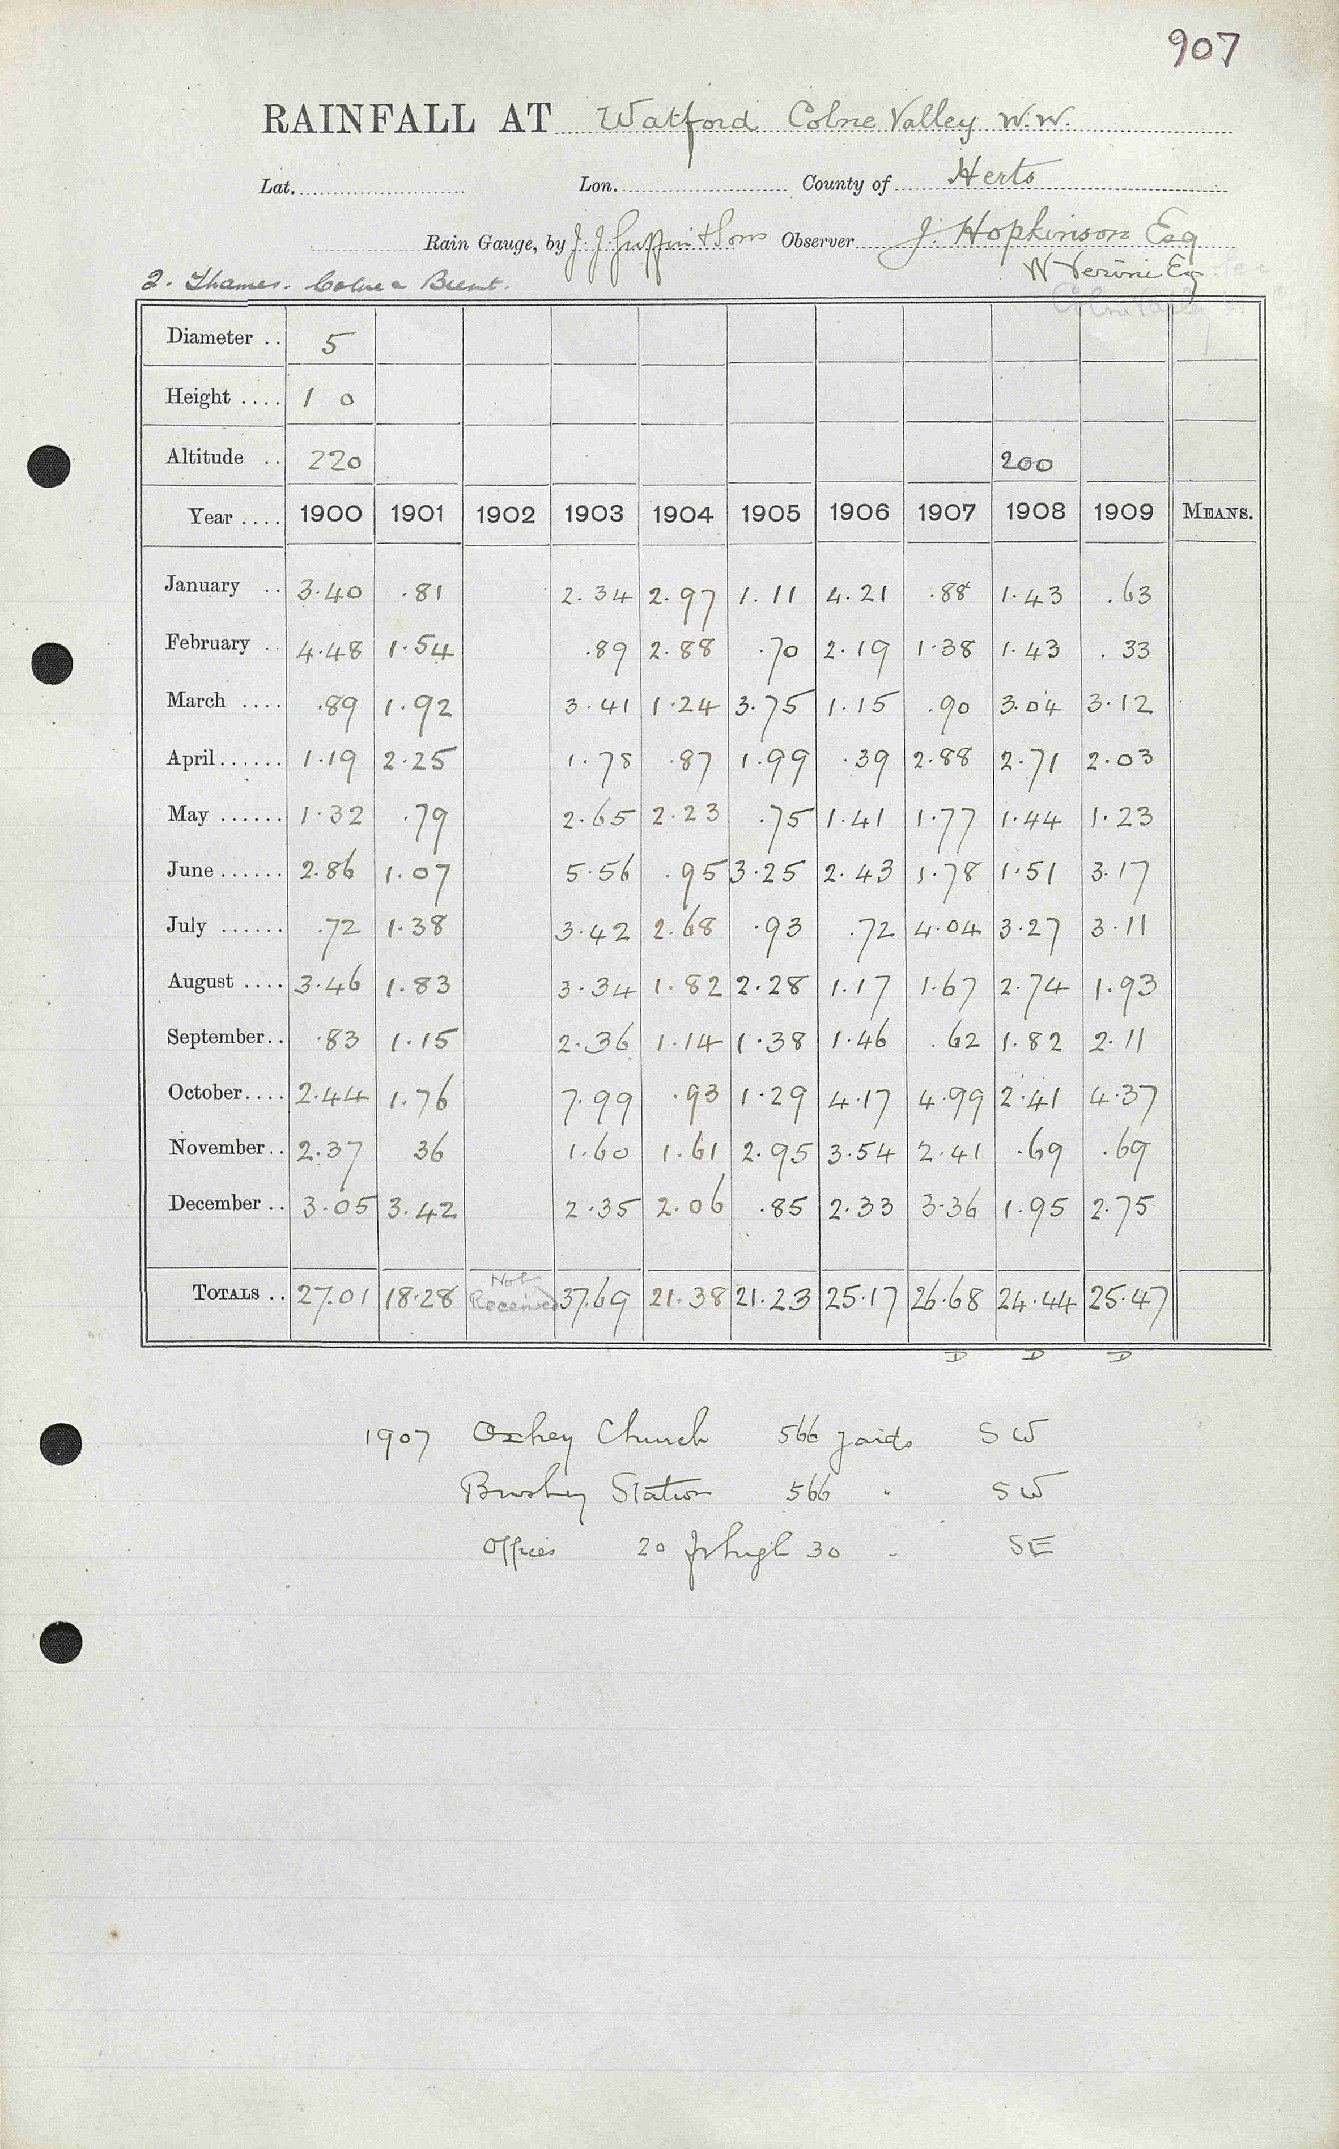 907
RAINFALL AT Watford Colne Valley W.W.
Lat. Lon. County of Herts
Rain Gauge, by J. J. Griffin & Sons Observer J. Hopkinson Esq
W Verini Esq
2. Thames. Colne & Brent.
Colne Valley
Diameter .. 5
Height .... 1 0
Altitude .. 220 200
Year .... 1900 1901 1902 1903 1904 1905 1906 1907 1908 1909 MEANS.
January .. 3.40 .81 2.34 2.97 1.11 4.21 .88 1.43 .63
February .. 4.48 1.54 .89 2.88 .70 2.19 1.38 1.43 .33
March .... .89 1.92 3.41 1.24 3.75 1.15 .90 3.04 3.12
April...... 1.19 2.25 1.78 .87 1.99 .39 2.88 2.71 2.03
May ...... 1.32 .79 2.65 2.23 .75 1.41 1.77 1.44 1.23
June ...... 2.86 1.07 5.56 .95 3.25 2.43 1.78 1.51 3.17
July ...... .72 1.38 3.42 2.68 .93 .72 4.04 3.27 3.11
August .... 3.46 1.83 3.34 1.82 2.28 1.17 1.67 2.74 1.93
September.. .83 1.15 2.36 1.14 1.38 1.46 .62 1.82 2.11
October.... 2.44 1.76 7.99 .93 1.29 4.17 4.99 2.41 4.37
November.. 2.37 36 1.60 1.61 2.95 3.54 2.41 .69 .69
December .. 3.05 3.42 2.35 2.06 .85 2.33 3.36 1.95 2.75
TOTALS .. 27.01 18.28 Not Received 37.69 21.38 21.23 25.17 26.68 24.44 25.47
D D D
1907 Oxhey Church 566 yards SW
Bushey Station 566 " SW
Offices 20 ft high 30 " SE